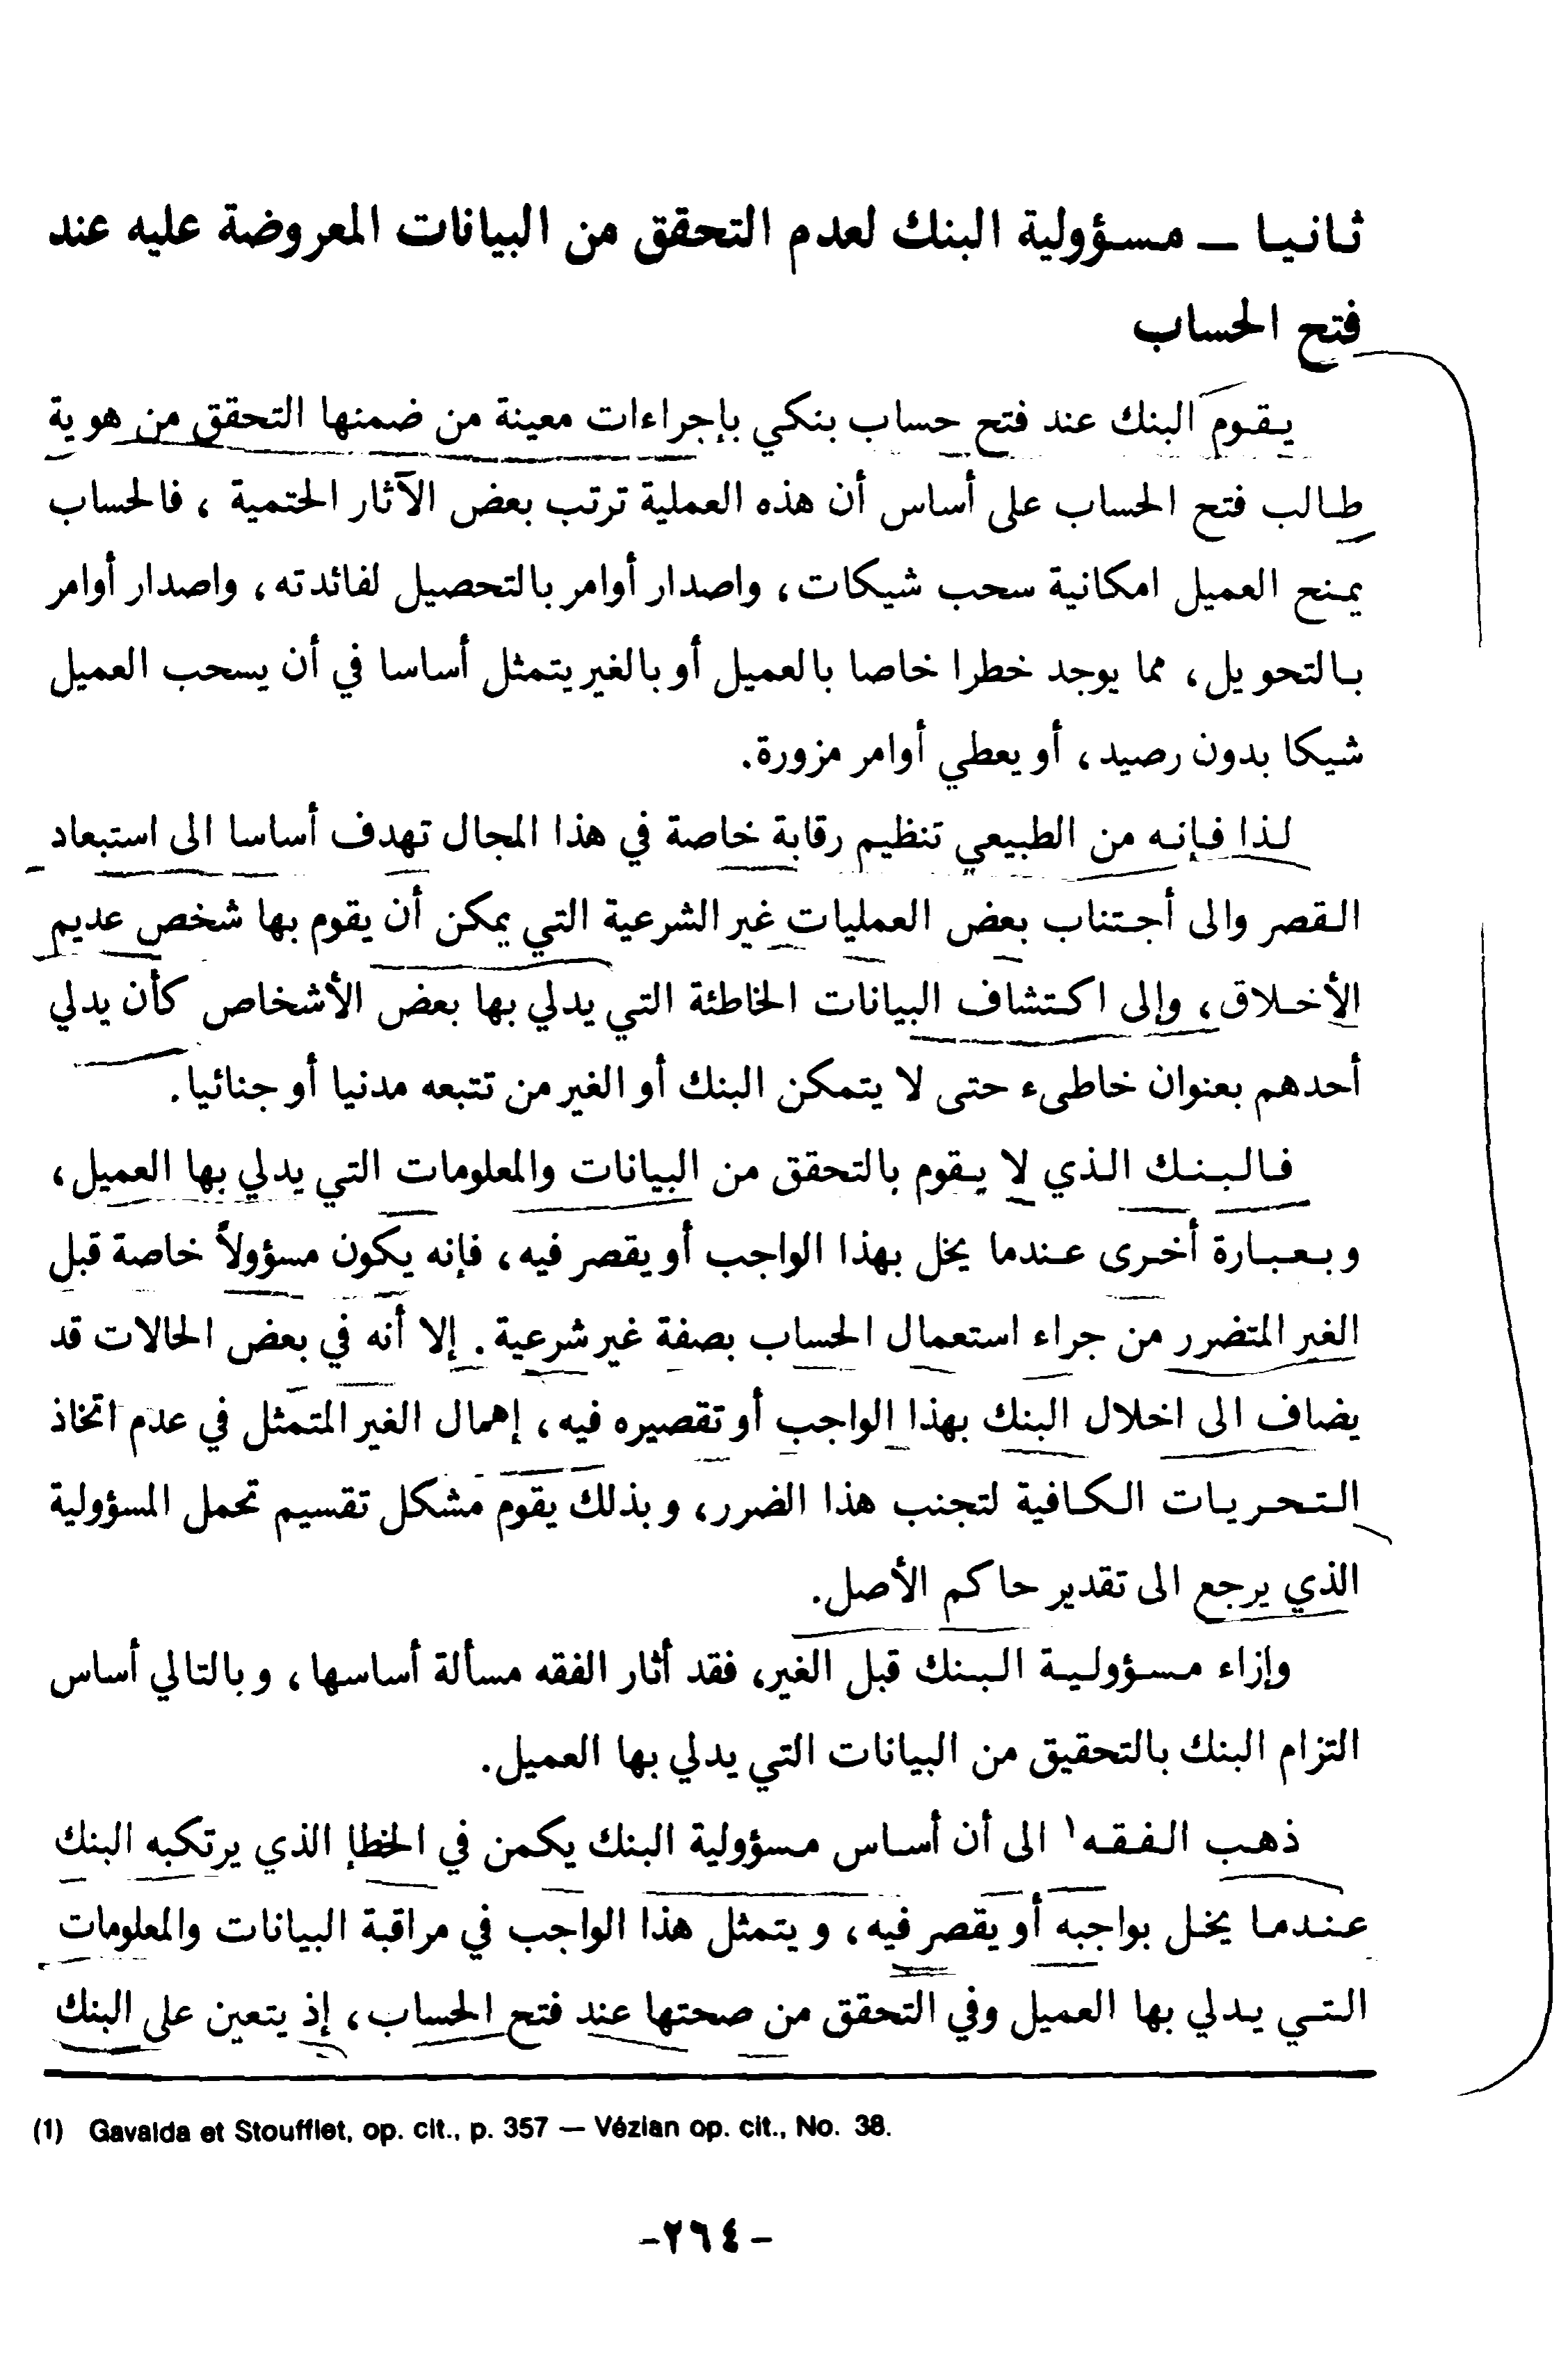 ثانيا — مسؤولية البنك لعدم التحقق من البيانات المعروضة عليه عند
فتح الحساب
يقوم البنك عند فتح حساب بنكي بإجراءات معينة من ضمنها التحقق من هوية
طالب فتح الحساب على أساس أن هذه العملية ترتب بعض الآثار الحتمية ، فالحساب
يمنح العميل امكانية سحب شيكات، واصدار أوامر بالتحصيل لفائدته، واصدار أوامر
بالتحويل، مما يوجد خطرا خاصا بالعميل أو بالغير يتمثل أساسا في أن يسحب العميل
شيكا بدون رصيد، أو يعطي أوامر مزورة.
لذا فإنه من الطبيعي تنظيم رقابة خاصة في هذا المجال تهدف أساسا الى استبعاد
القصر والى أجتناب بعض العمليات غير الشرعية التي يمكن أن يقوم بها شخص عديم
الأخلاق، وإلى اكتشاف البيانات الخاطئة التي يدلي بها بعض الأشخاص كأن يدلي
أحدهم بعنوان خاطىء حتى لا يتمكن البنك أو الغير من تتبعه مدنيا أو جنائيا.
فالبنك الذي لا يقوم بالتحقق من البيانات والمعلومات التي يدلي بها العميل،
وبعبارة أخرى عندما يخل بهذا الواجب أو يقصر فيه، فإنه يكون مسؤولاً خاصة قبل
الغير المتضرر من جراء استعمال الحساب بصفة غير شرعية. إلا أنه في بعض الحالات قد
يضاف الى اخلال البنك بهذا الواجب أو تقصيره فيه، إهمال الغير المتمثل في عدم اتخاذ
التحريات الكافية لتجنب هذا الضرر، وبذلك يقوم مشكل تقسيم تحمل المسؤولية
الذي يرجع الى تقدير حاكم الأصل.
وإزاء مسؤولية البنك قبل الغير، فقد أثار الفقه مسألة أساسها، وبالتالي أساس
التزام البنك بالتحقيق من البيانات التي يدلي بها العميل.
ذهب الفقه١ الى أن أساس مسؤولية البنك يكمن في الخطإ الذي يرتكبه البنك
عندما يخل بواجبه أو يقصر فيه، ويتمثل هذا الواجب في مراقبة البيانات والمعلومات
التي يدلي بها العميل وفي التحقق من صحتها عند فتح الحساب، إذ يتعين على البنك
(1) Gavalda et Stoufflet, op. cit., p. 357 — Vézian op. cit., No. 38.
-٢٦٤-